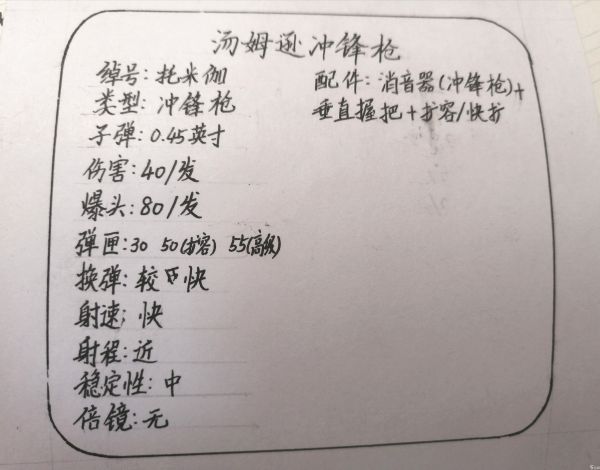 汤姆逊冲锋枪
绰号：托米伽
类型：冲锋枪
子弹：0.45英寸
伤害：40/发
爆头：80/发
弹匣：30 50(扩容) 55(高级)
换弹：较快
射速：快
射程：近
稳定性：中
倍镜：无
配件：消音器(冲锋枪)+
垂直握把+扩容/快扩